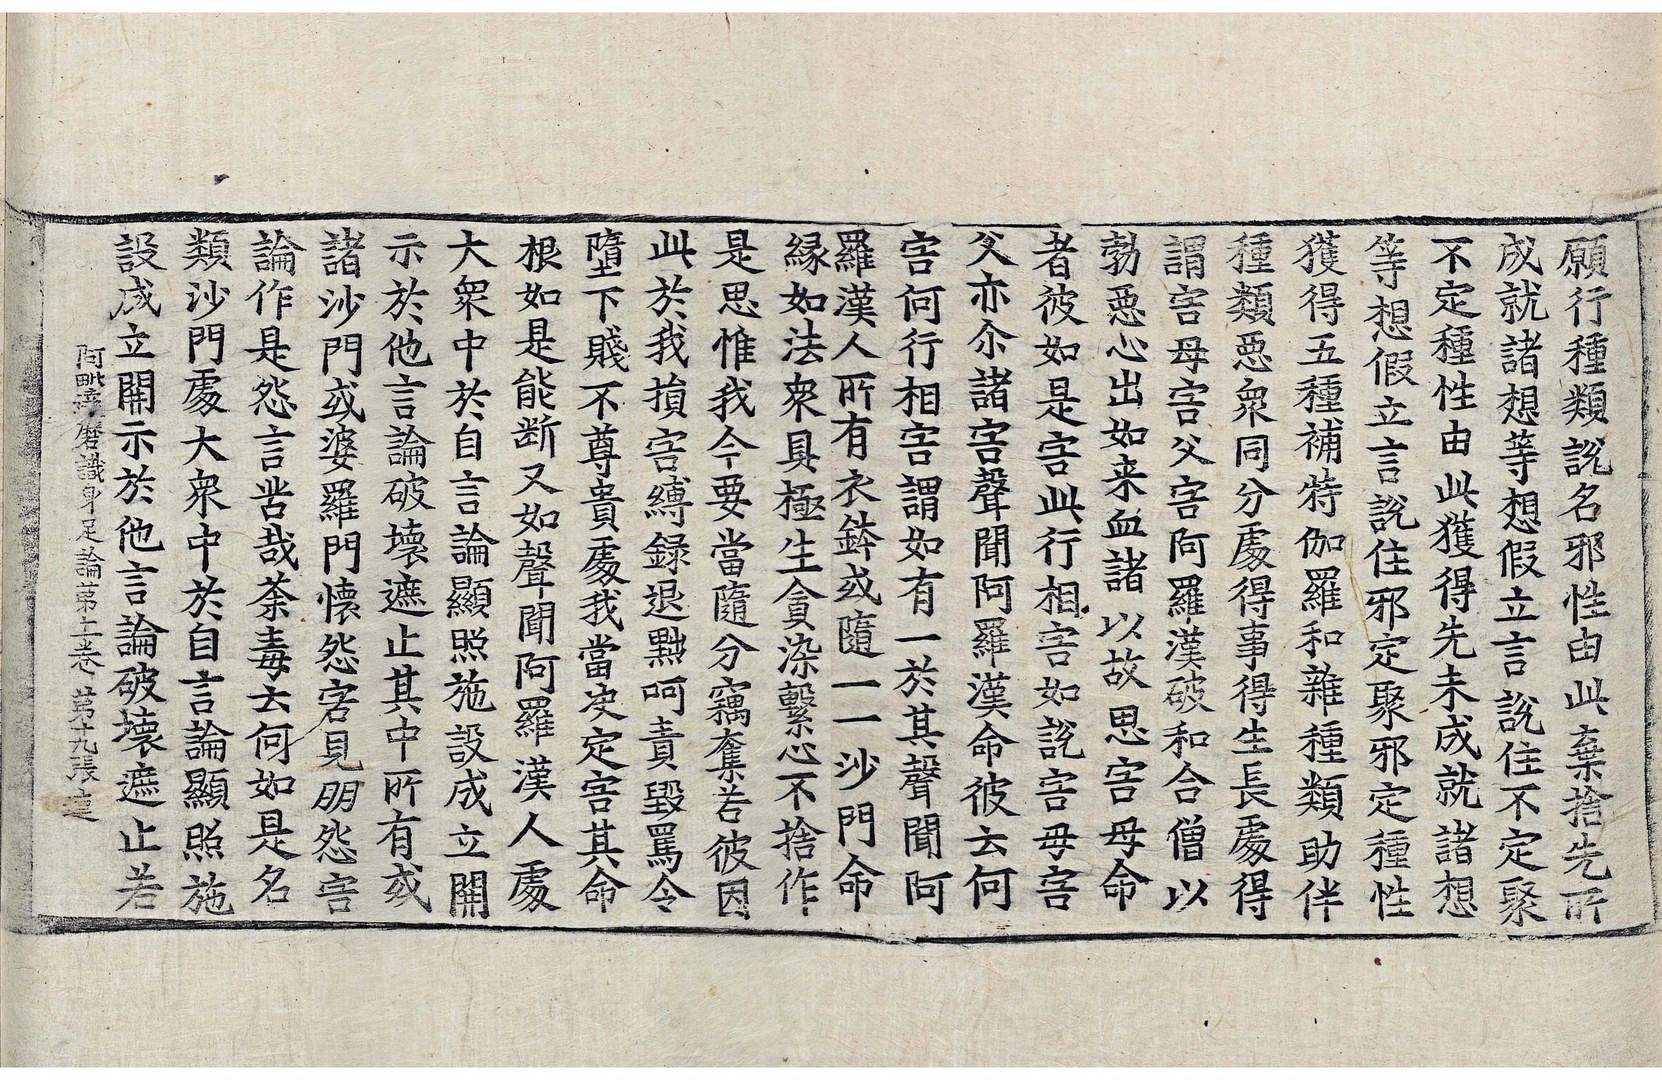 願行種類說名邪性由此棄捨先所
成就諸想等想假立言說住不定聚
不定種性由此獲得先未成就諸想
等想假立言說住邪定聚邪定種性
獲得五種補特伽羅和雜種類助伴
種類惡衆同分處得事得生長處得
謂害母害父害阿羅漢破和合僧以
勃惡心出如来血諸以故思害母命
者彼如是害此行相害如說害母害
父亦尒諸害聲聞阿羅漢命彼云何
害何行相害謂如有一於其聲聞阿
羅漢人所有衣鉢或隨一一沙門命
緣如法衆具極生貪染繫心不捨作
是思惟我今要當隨分竊奪若彼因
此於我損害縛録退黜呵責毀罵令
墮下賤不尊貴處我當決定害其命
根如是能断又如聲聞阿羅漢人處
大衆中於自言論顯照施設成立開
示於他言論破壞遮止其中所有或
諸沙門或婆羅門懷怨害見朋怨害
論作是怨言苦哉荼毒云何如是名
類沙門處大衆中於自言論顯照施
設成立開示於他言論破壞遮止若
阿毗達磨識身足論第十一卷 第十九張